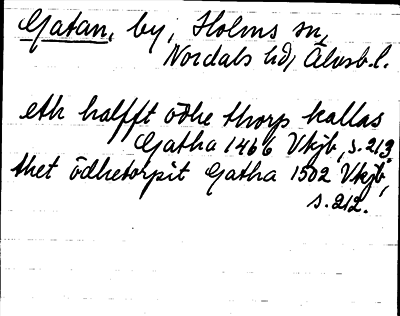 Gatan, by, Holms sn,
Nordals hd, Älvsb.l.
eth halfft ödhe thorp kallas
Gatha 1466 Vkjb, s. 213.
thet ödhetorpit Gatha 1502 Vkjb,
s. 212.